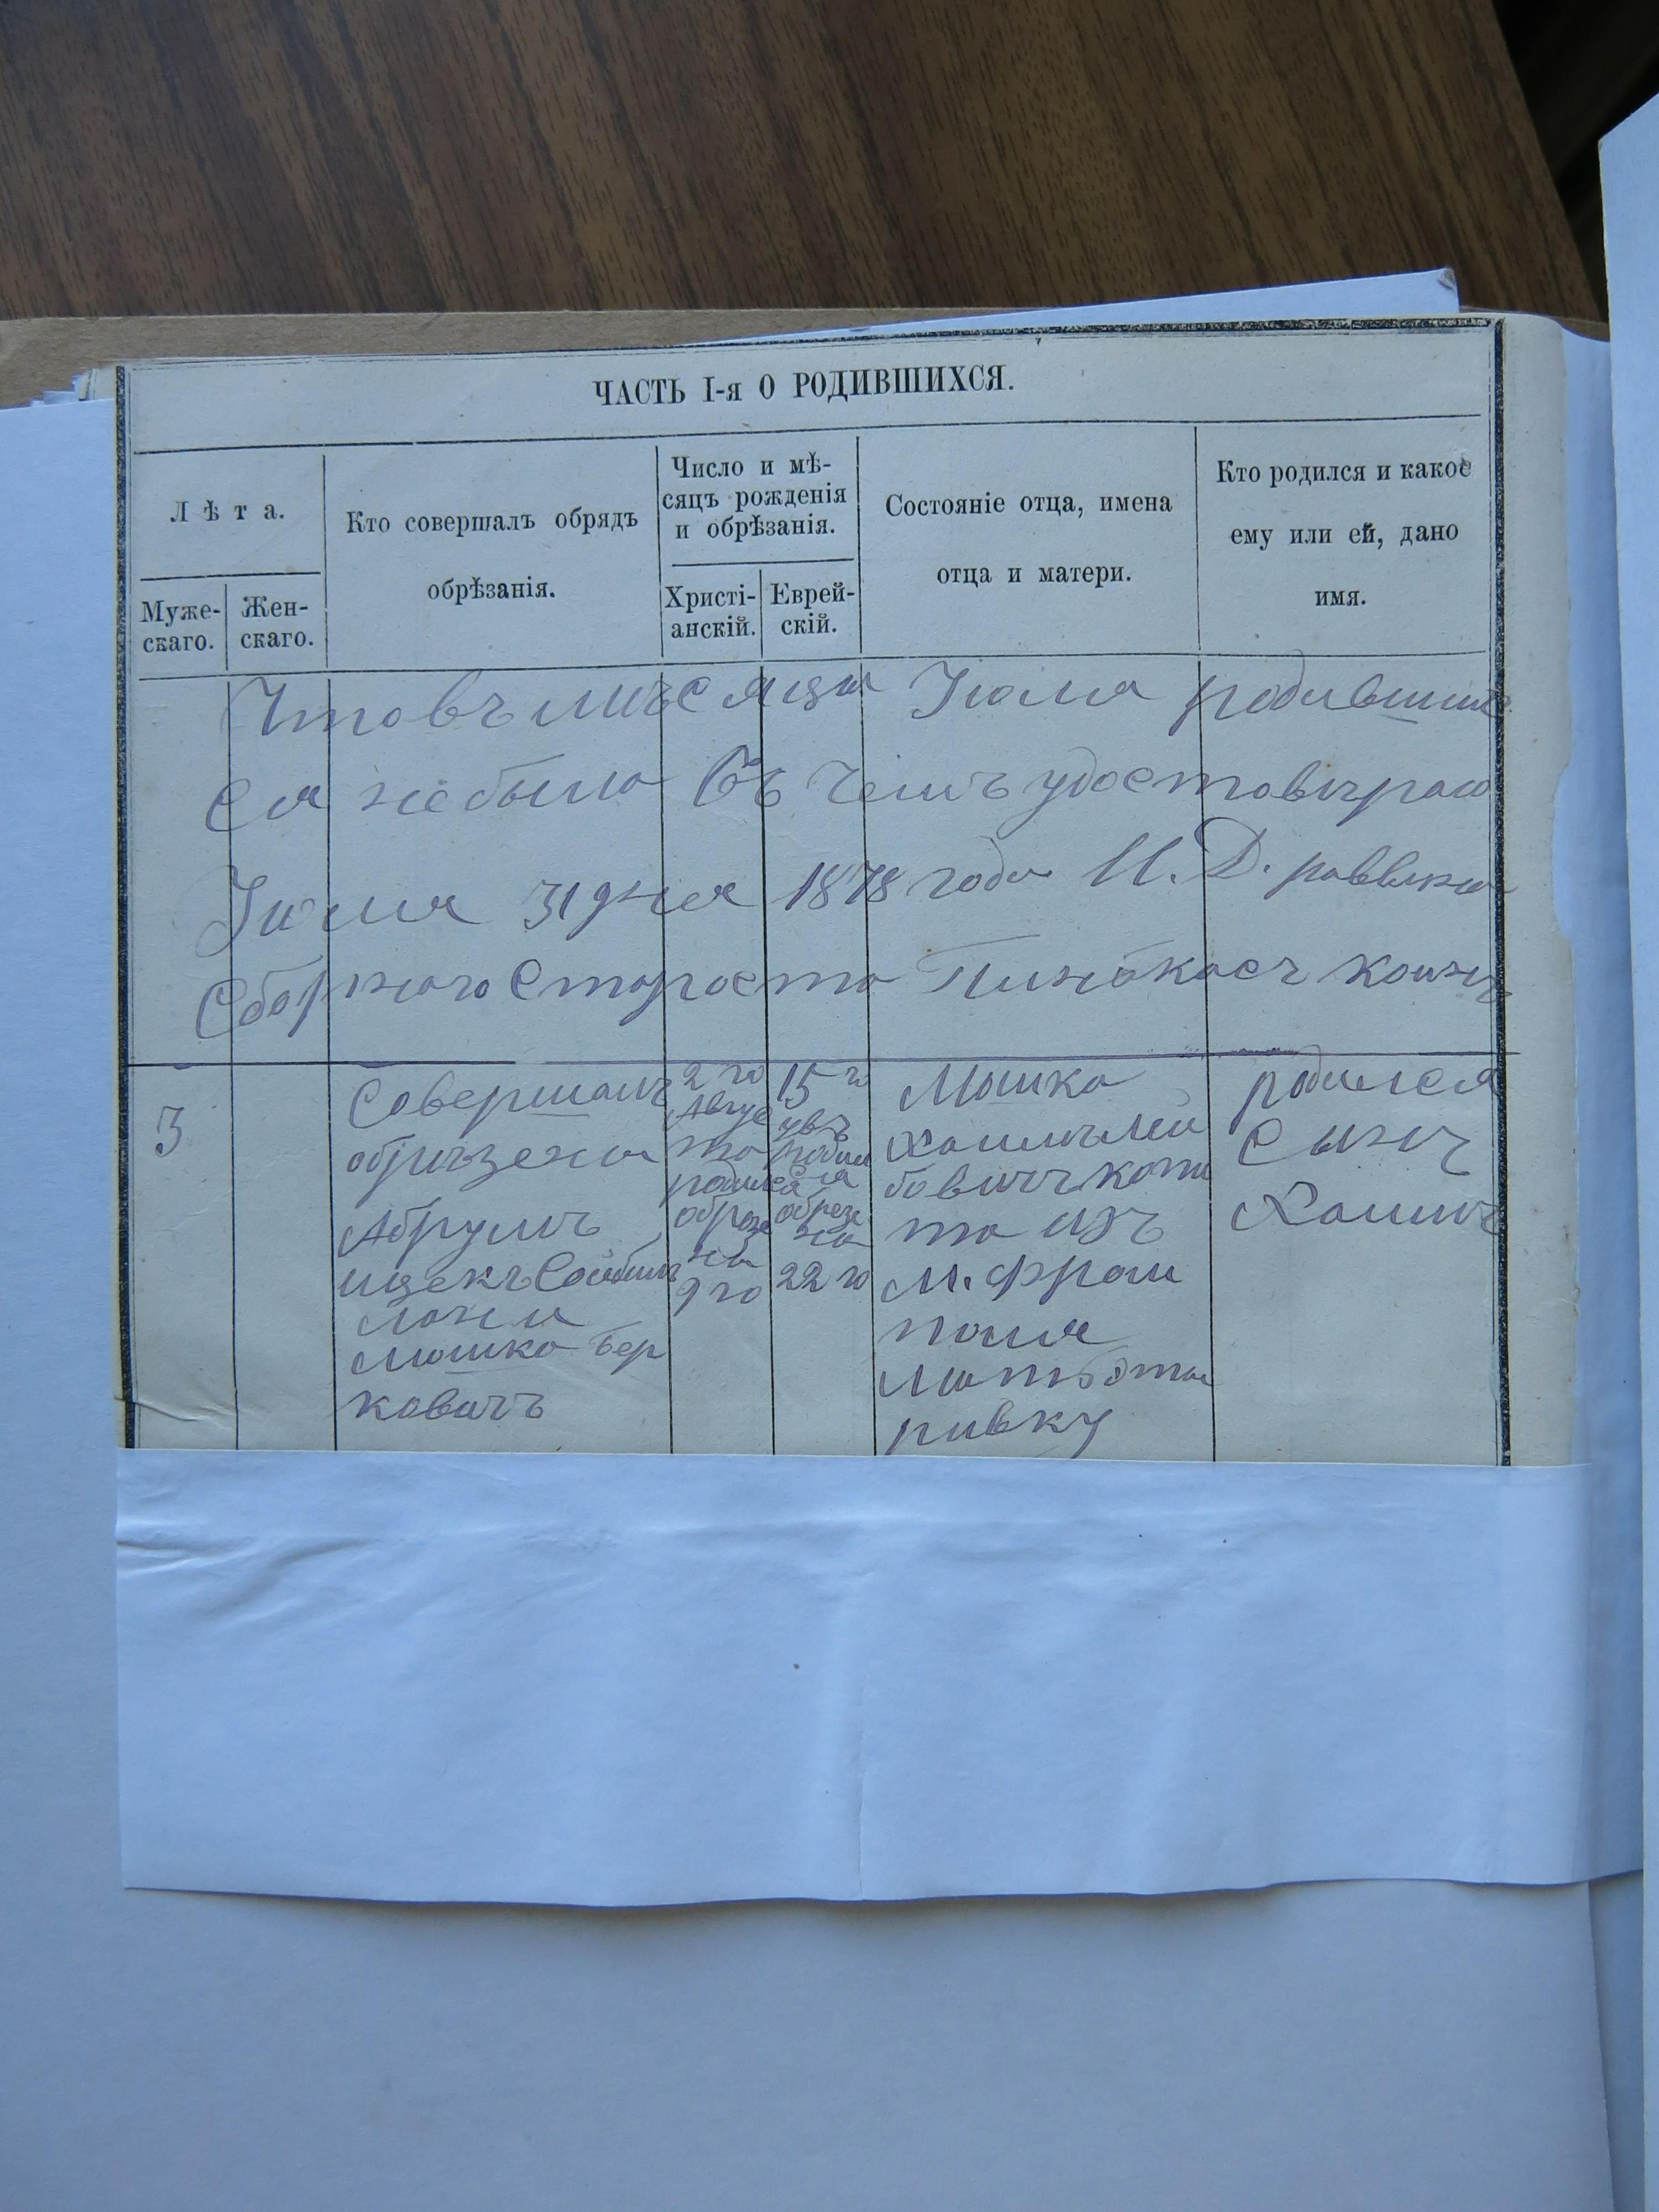 ЧАСТЬ I-я О РОДИВШИХСЯ.
Лѣта.
Муже-
скаго.
Жен-
скаго.
Кто совершалъ обрядъ
обрѣзанія.
Число и мѣ-
сяцъ рожденія
и обрѣзанія.
Христі-
анскій.
Еврей-
скій.
Состояніе отца, имена
отца и матери.
Кто родился и какое
ему или ей, дано
имя.
Что въ мѣсяца Іюля родивших
ся не было въ чемъ удостовѣраю
Іюля 31 дня 1878 года И. Д. раввина
Сборнаго Староста
3
Совершалъ
обрѣзена
Абрумъ
ицекъ
Мошко Бер
ковичъ
2 го
Авгус
та
родился
обрезе
на
9 го
15 го
увъ
родил
ся
обрезе
на
22 го
Мошко
Хаимълей
бовичъ
та изъ
м. Фрам
поля
мать
ривку
родился
Сынъ
Хаимъ